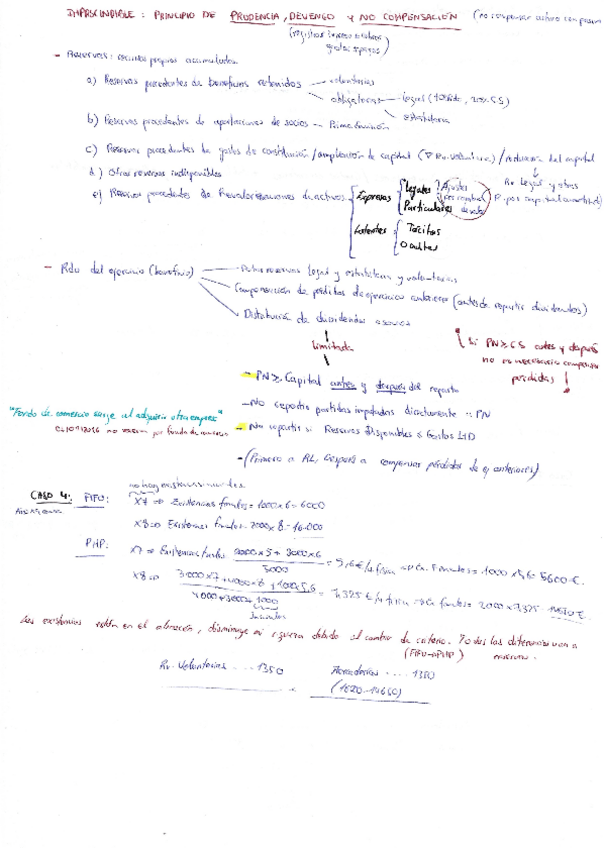 IMPRESCINDIBLE: PRINCIPIO DE PRUDENCIA, DEVENGO y NO COMPENSACIÓN (no compensar activo con pasivo
- Reservas: recursos propios acumulados
a) Reservas procedentes de beneficios retenidos — voluntarias
obligatorias — legal (
estatutaria
b) Reservas procedentes de aportaciones de socios — Prima emisión
c) Reservas procedentes de gastos de constitución / ampliación de capital (∇ Rv. Voluntaria) / reducción del capital
d) Otras reservas indisponibles
Rv legal y otras
e) Reservas procedentes de Revalorizaciones de activos
Expresas
Legales
Particulares
Ajustes
Latentes
Tácitas
Ocultas
- Rdo del ejercicio (beneficio) — Dotar reservas legal y estatutaria y voluntarias
Compensación de pérdidas de ejercicios anteriores (antes de repartir dividendos)
Distribución de dividendos a socios
Limitada
Si PN ≥ CS antes y después no es necesario compensar pérdidas!
- PN ≥ Capital antes y después del reparto
- No repartir partidas imputadas directamente a PN
- No repartir si Reservas Disponibles ≤ Gastos I+D
- (Primero a RL, después a compensar pérdidas de ej anteriores)
"Fondo de comercio surge al adquirir otra empresa"
no por fondo de comercio
CASO 4:
FIFO:
no hay existencias iniciales
X7 ⇒ Existencias finales = 1000 x 6 = 6000
X8 ⇒ Existencias finales = 2000 x 8 = 16.000
PMP:
X7 ⇒ Existencias finales 2000 x 5 + 3000 x 6 / 5000 = 5,6 €/u física ⇒ Ex. Finales = 1000 x 5,6 = 5600 €.
X8 ⇒ 3000 x 7 + 4000 x 8 + 1000 x 5,6 / 4000 + 3000 + 1000 = 7,325 €/u física ⇒ Ex finales = 2000 x 7,325 = 14650 €.
Iniciales
Las existencias están en el almacén, disminuye mi riqueza debido al cambio de criterio. Todas las diferencias van a reservas.
(FIFO → PMP)
Rv. Voluntarias .... 1350
.... 1350